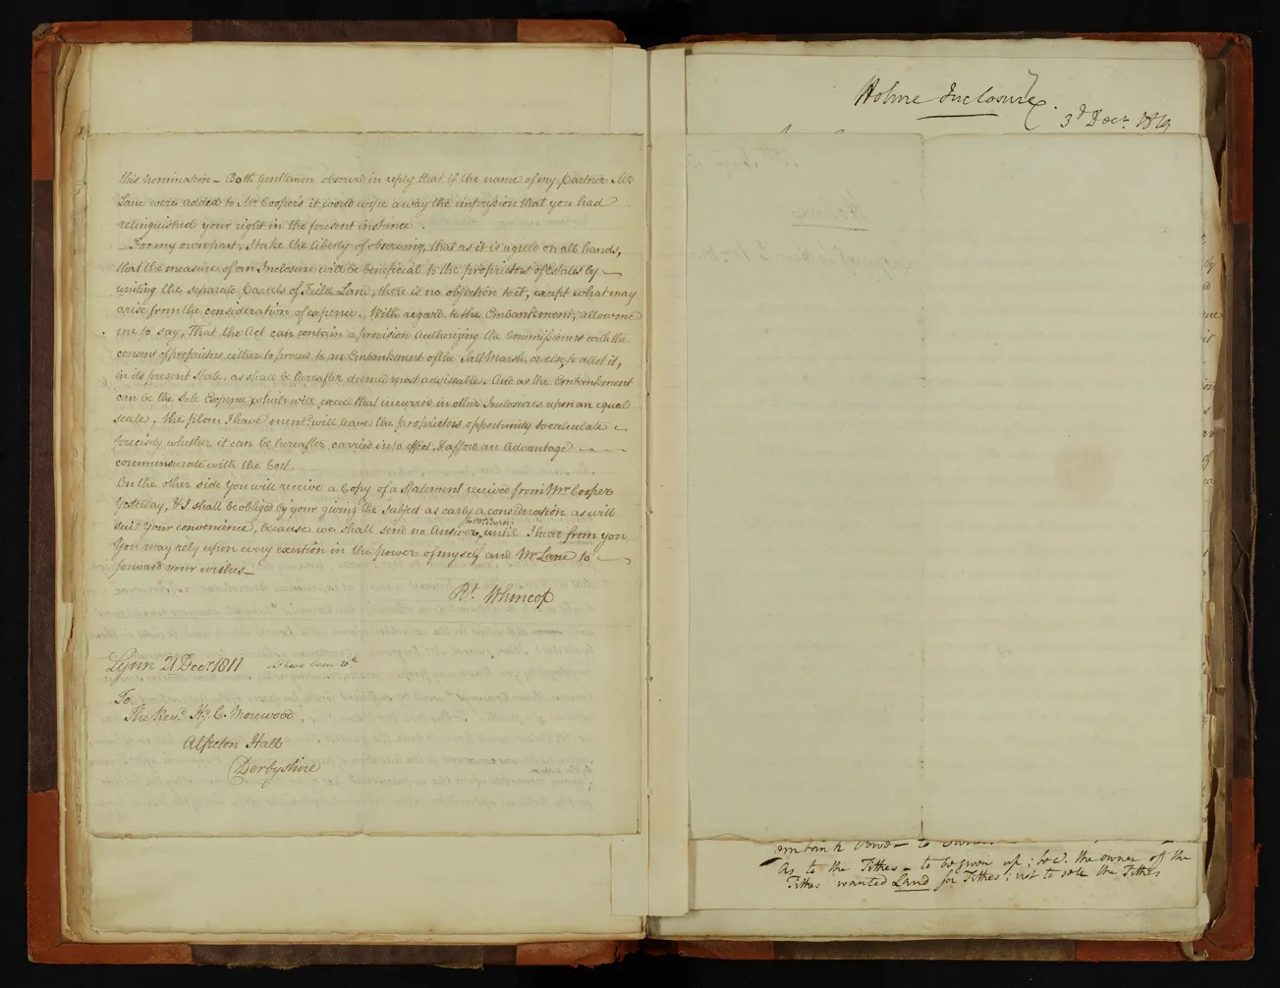 this nomination – Both Gentlemen observed in reply that if the name of my partner Mr
Lane were added to Mr Cooper's it would wipe away the impression that you had
relinquished your right in the present instance.
For my own part, I take the liberty of observing, that as it is agreed on all hands,
that the measure of an Inclosure will be beneficial to the proprietors of Estates by
uniting the separate parcels of Field Land, there is no objection to it, except what may
arise from the consideration of expence. With regard to the Embankment, allow me
me to say, that the Act can contain a provision Authorizing the Commissioners with the
consent of proprietors either to proceed to an Embankment of the Salt Marsh, or else, to allot it,
in its present State, as shall be hereafter deemed most adviseable. And as the Embankment
can be the Sole Expence which will exceed that incurred in other Inclosures upon an equal
scale, the plan I have ment.d will leave the proprietors opportunity to calculate
precisely whether it can be hereafter carried into effect, & afford an Advantage
commensurate with the Cost.
On the other side You will receive a Copy of a Statement received from Mr Cooper
Yesterday, & I shall be obliged by your giving the Subject as early a consideration as will
suit Your convenience, because we shall send no Answer until I hear from you
You may rely upon every exertion in the power of myself and Mr Lane to
forward your wishes –
Rt. Whincop
Lynn 21 Decr. 1811
To
The Revd. Hy. C. Morewood
Alfreton Hall
Derbyshire
Holme Inclosure.
3d Decr. 1819
As to the Tithes – to be given up; but the owner of the
Tithes wanted Land for Tithes; not to sell the Tithes